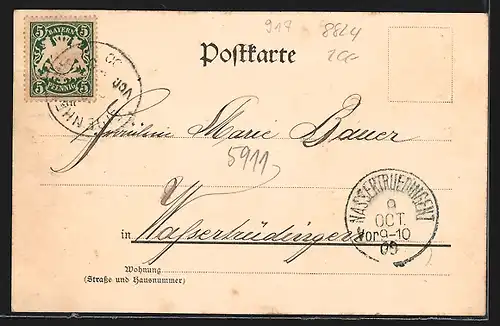 917
8824
BAYERN
5 5
5 5
PFENNIG
Postkarte
VOR
Fräulein Marie Bauer
5911
WASSERTRUEDINGEN
9
OCT.
Vor9-10
00
in Wassertrüdingen
Wohnung
(Straße und Hausnummer)